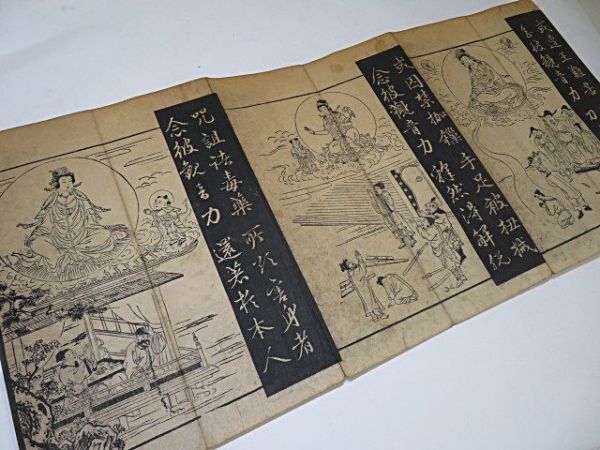 或遭王難苦
念彼觀音力
或囚禁枷鎖 手足被杻械
念彼觀音力 釋然得解脱
咒詛諸毒藥 所欲害身者
念彼觀音力 還著於本人